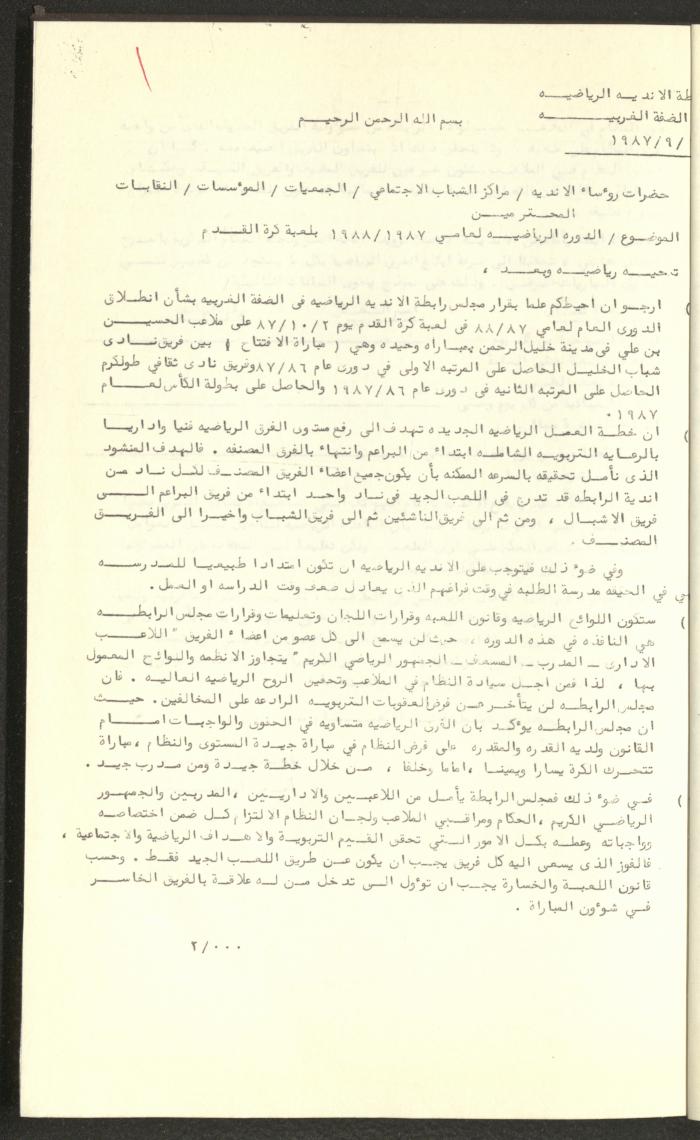 طة الانديـه الرياضيـــه
الضفة الغربيـــــــه
/٩/١٩٨٧
بسم الله الرحمن الرحيـــم
حضرات روءساء الانديه / مراكز الشباب الاجتماعي / الجمعيات / الموءسسات / النقابات
المحترميــن
الموضوع / الدوره الرياضيـــه لعامي ١٩٨٨/١٩٨٧ بلعبة كرة القـــدم
تحيـــه رياضيـــه وبعـــد ،
ارجـو ان احيطكم علما بقرار مجلس رابطة الانديه الرياضيه في الضفة الغربيه بشأن انطـلاق
الدورى العام لعامي ٨٨/٨٧ فى لعبة كرة القدم يوم ٨٧/١٠/٢ على ملاعب الحسيـــن
بن علي فى مدينة خليل الرحمن بمباراه وحيده وهي ( مباراة الافتتاح ) بين فريق نـادى
شباب الخليـل الحاصل على المرتبه الاولى في دورى عام ٨٧/٨٦ وفريق نادى ثقافي طولكرم
الحاصل على المرتبه الثانيه فى دورى عام ١٩٨٧/٨٦ والحاصل على بطولة الكأس لعـــام
١٩٨٧ .
ان خطـة العمـل الرياضيه الجديده تهدف الى رفع مستوى الفرق الرياضيه فنيا واداريـــا
بالرعـايه التربويـه الشاملـه ابتداء من البراعم وانتهاء بالفرق المصنفه . فالهدف المنشود
الذى نأمـل تحقيقه بالسرعه الممكنه بأن يكون جميع اعضاء الفريق المصنـف لكـل نـاد مـن
اندية الرابطه قد تدرج فى اللعب الجيد فى نـاد واحـد ابتداء من فريق البراعم الـــى
فريق الاشبـال ، ومن ثم الى فريق الناشئين ثم الى فريق الشباب واخيرا الى الفريـــق
المصنـــف .
وفي ضوء ذلك فيتوجب على الانديه الرياضيه ان تكون امتدادا طبيعيـا للمدرســه
في الحيفه مدرسة الطلبه في وقت فراغهم الذى يعادل ضعف وقت الدراسه او العمل .
ستكون اللوائح الرياضيه وقانون اللعبه وقرارات اللجان وتعليمات وقرارات مجلس الرابطــه
هي النافذه في هذه الدوره ، حيث لن يسمح الى كل عضو من اعضاء الفريق " اللاعـب
الادارى ــ المدرب ــ المسعف ــ الجمهور الرياضي الكريم " يتجاوز الانظمه واللوائح المعمول
بهـا ، لذا فمن اجـل سيادة النظام في الملاعب وتحقيق الروح الرياضيه العاليـه . فان
مجلس الرابطه لن يتأخـر عـن فرض العقوبات التربويـه الرادعه على المخالفين . حيـث
ان مجلس الرابطـه يوءكـد بان الفرق الرياضيه متساويه في الحقوق والواجبـات امـــام
القانون ولديه القدره والمقدره على فرض النظام في مباراة جيـدة المستوى والنظام ، مباراة
تتحـرك الكرة يسارا ويمينـا ، اماما وخلفا ، مـن خلال خطـة جيـدة ومن مـدرب جيـد .
فـي ضوء ذلك فمجلس الرابطة يأمـل من اللاعبيــن والاداريـيـن ، المدربين والجمهـور
الرياضـي الكريم ، الحكام ومراقبي الملاعب ولجـان النظام الالتزام كـل ضمن اختصاصـه
وواجباته وعمله بكـل الامور التـي تحقق القيـم التربويـة والاهـداف الرياضية والاجتماعية ،
فالفوز الذى يسعى اليه كل فريق يجـب ان يكون عـن طريق اللعـب الجيد فقـط . وحسب
قانون اللعبـة والخسارة يجـب ان توءول الـى تدخل مـن لـه علاقـة بالفريق الخاسـر
فـي شوءون المباراة .
٢/٠٠٠